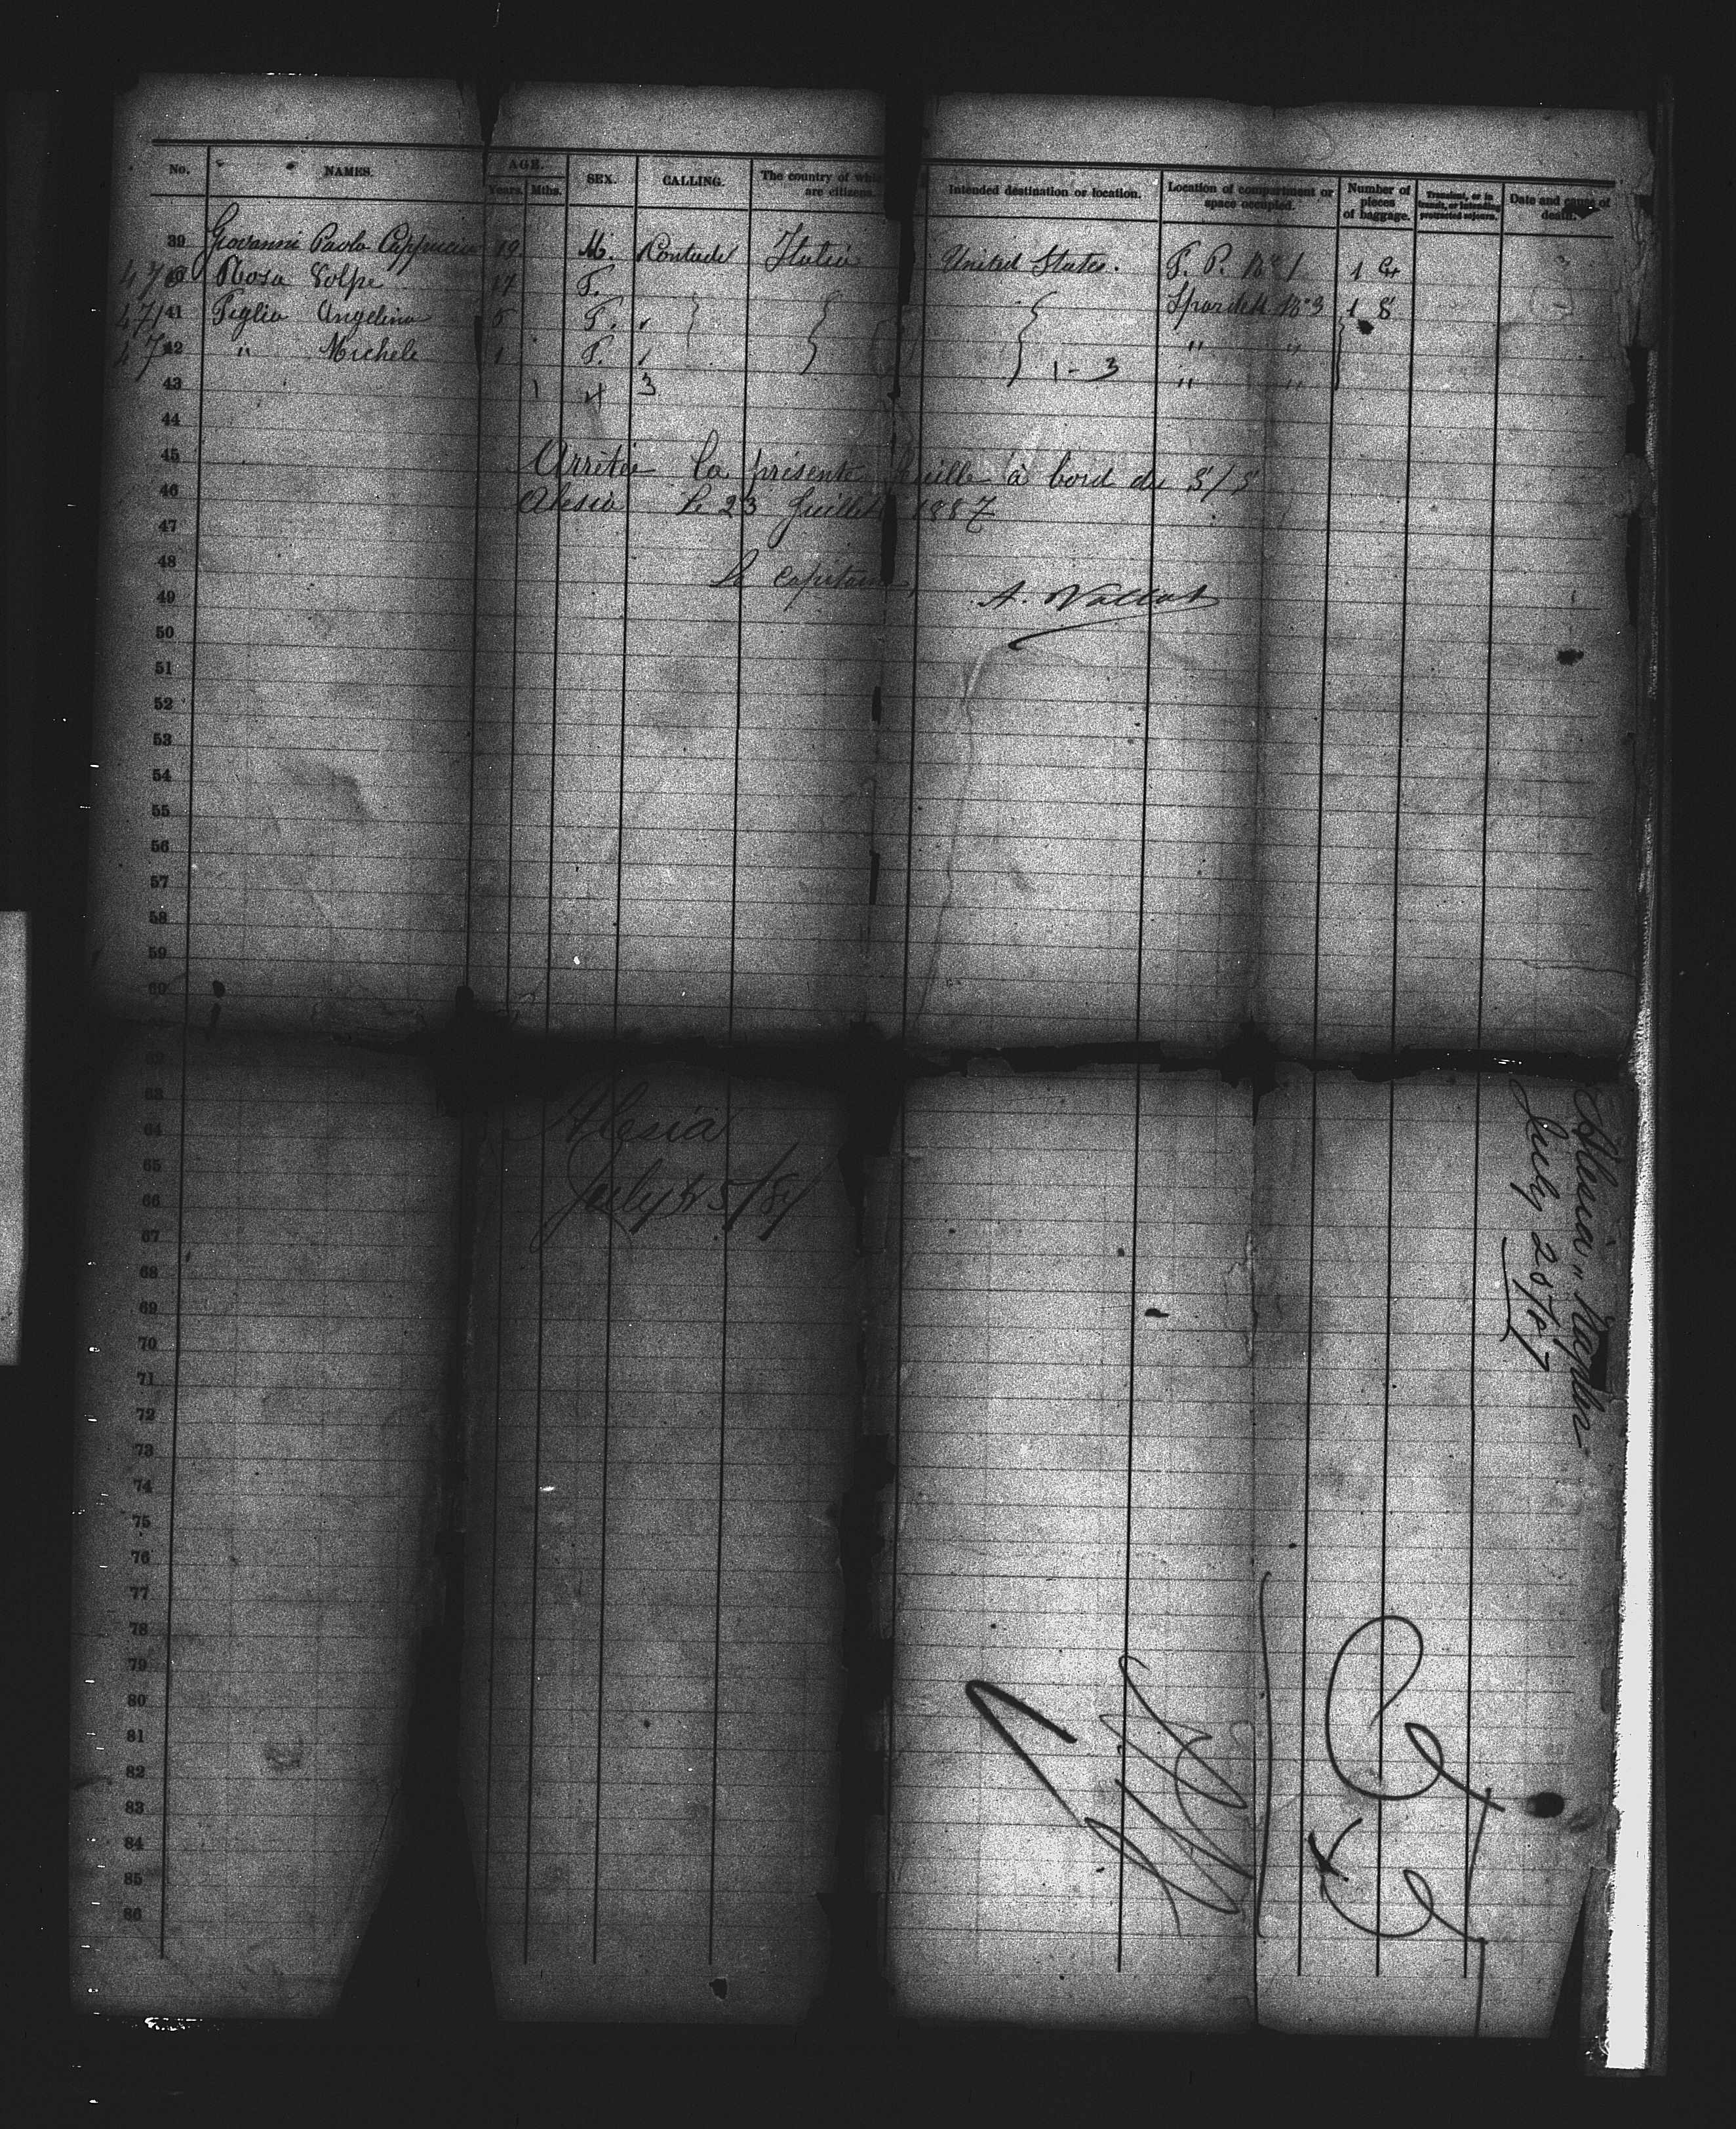 No. NAMES. AGE. Years. Mths. SEX. CALLING. The country of whi are citizens. Intended destination or location. Location of compartment or space occupied. Number of pieces of baggage. Transient, or in transit, or intending protracted sojourn. Date and cause of death.
39 Giovanni Paolo Cappuccio 19 M. Contad. Italia United States. F. P. No 1 1
470 40 Rosa Volpe 17 F. Spardek No 3 1 8
471 41 Figlia Angelina 5 F. " "
472 42 " Michele 1 F. 1 - 3 " "
43 1 4 3
44
45 Arrêtée la présente feuille à bord du S/S
46 Alesia Le 23 Juillet 1887
47
48 Le Capitaine,
49 A. Vallat
50
51
52
53
54
55
56
57
58
59
60
62
63
64 Alesia
65
66 July 25/87
67
68
69
70
71
72
73
74
75
76
77
78
79
80
81
82
83
84
85
86
"Alesia" Naples
July 25/87